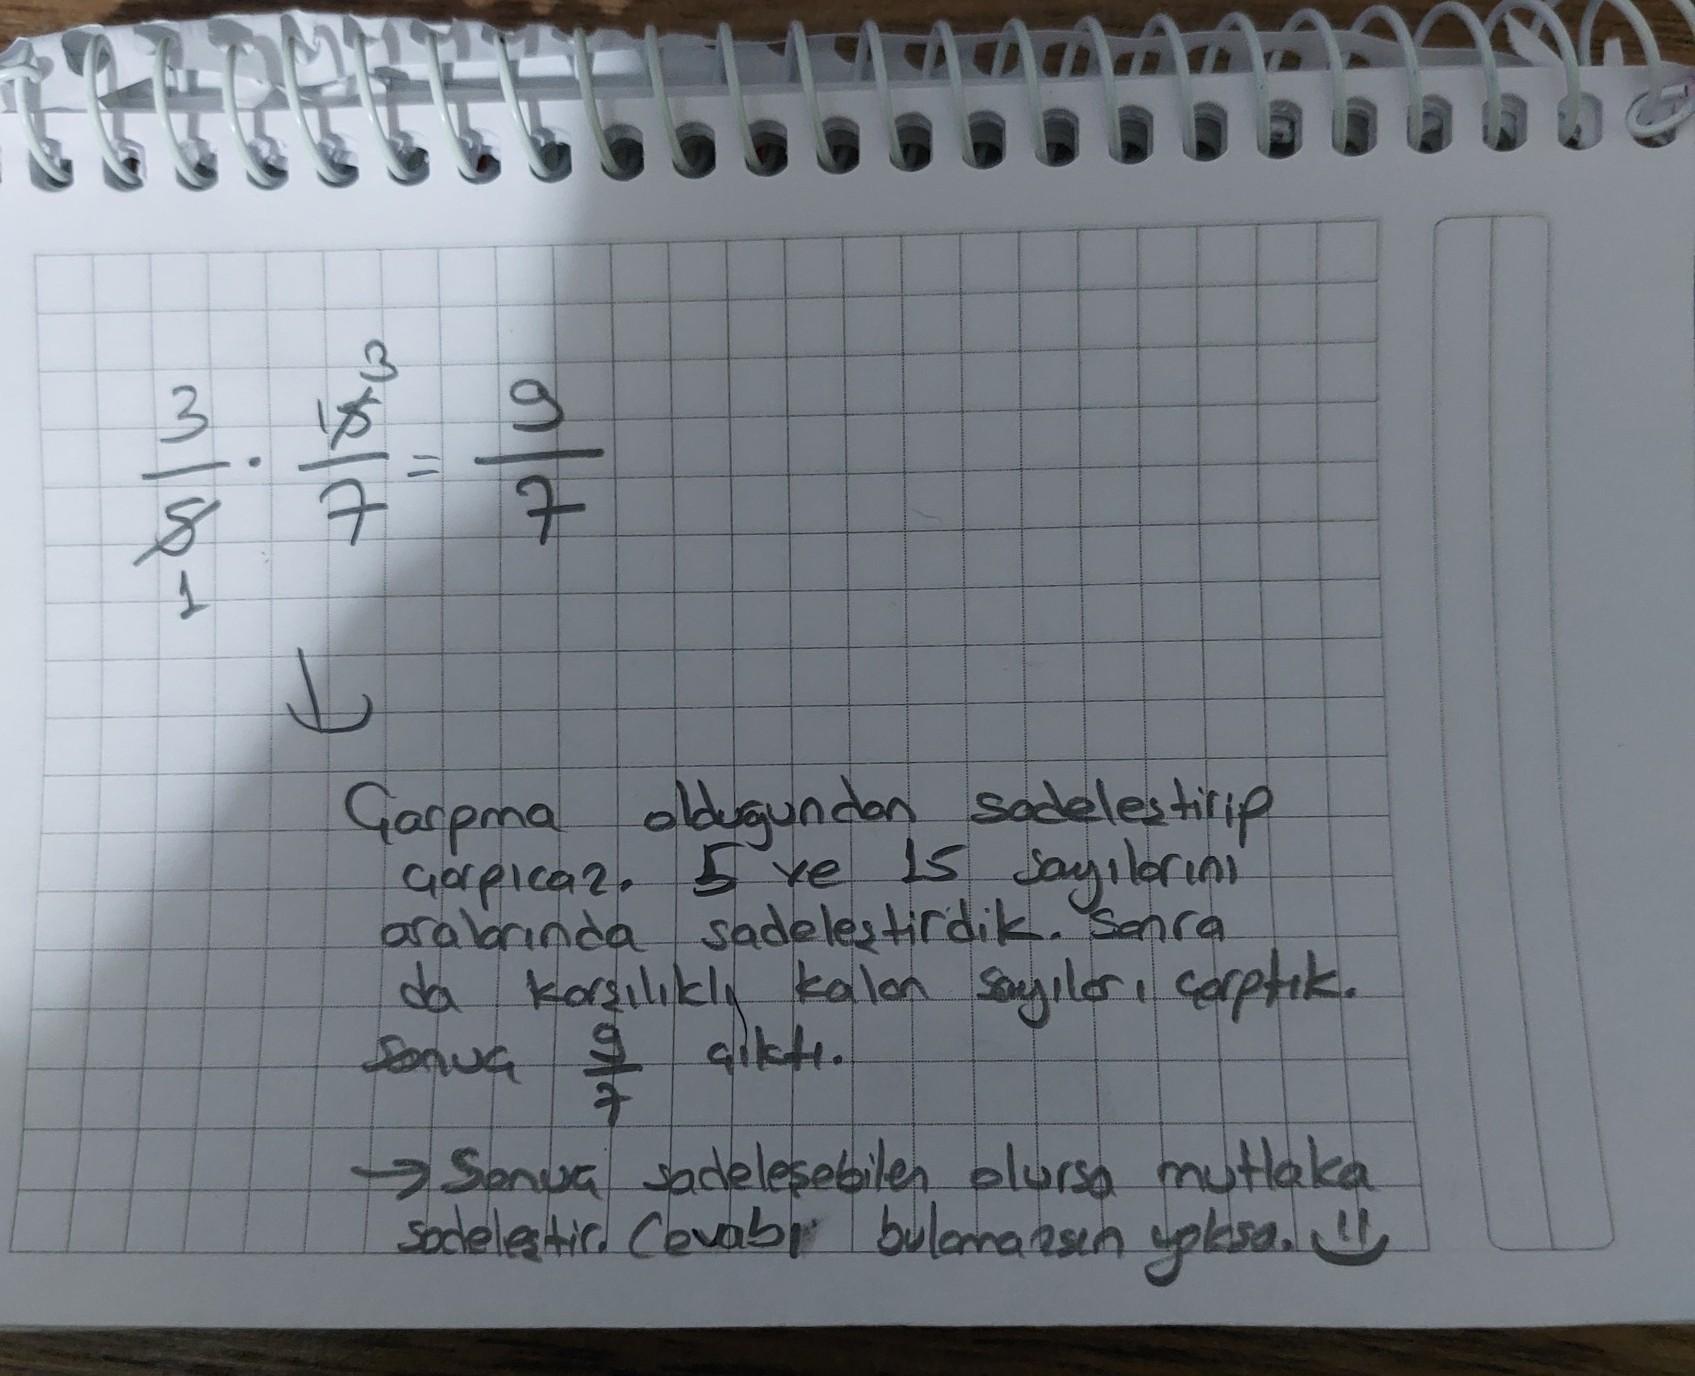 3/5 · 15/7 = 9/7
3
1
↓
Çarpma olduğundan sadeleştirip
çarpıcaz. 5 ve 15 sayılarını
aralarında sadeleştirdik. Sonra
da karşılıklı kalan sayıları çarptık.
Sonuç 9/7 çıktı.
→ Sonuç sadeleşebilen olursa mutlaka
sadeleştir. Cevabı bulamazsın yoksa.